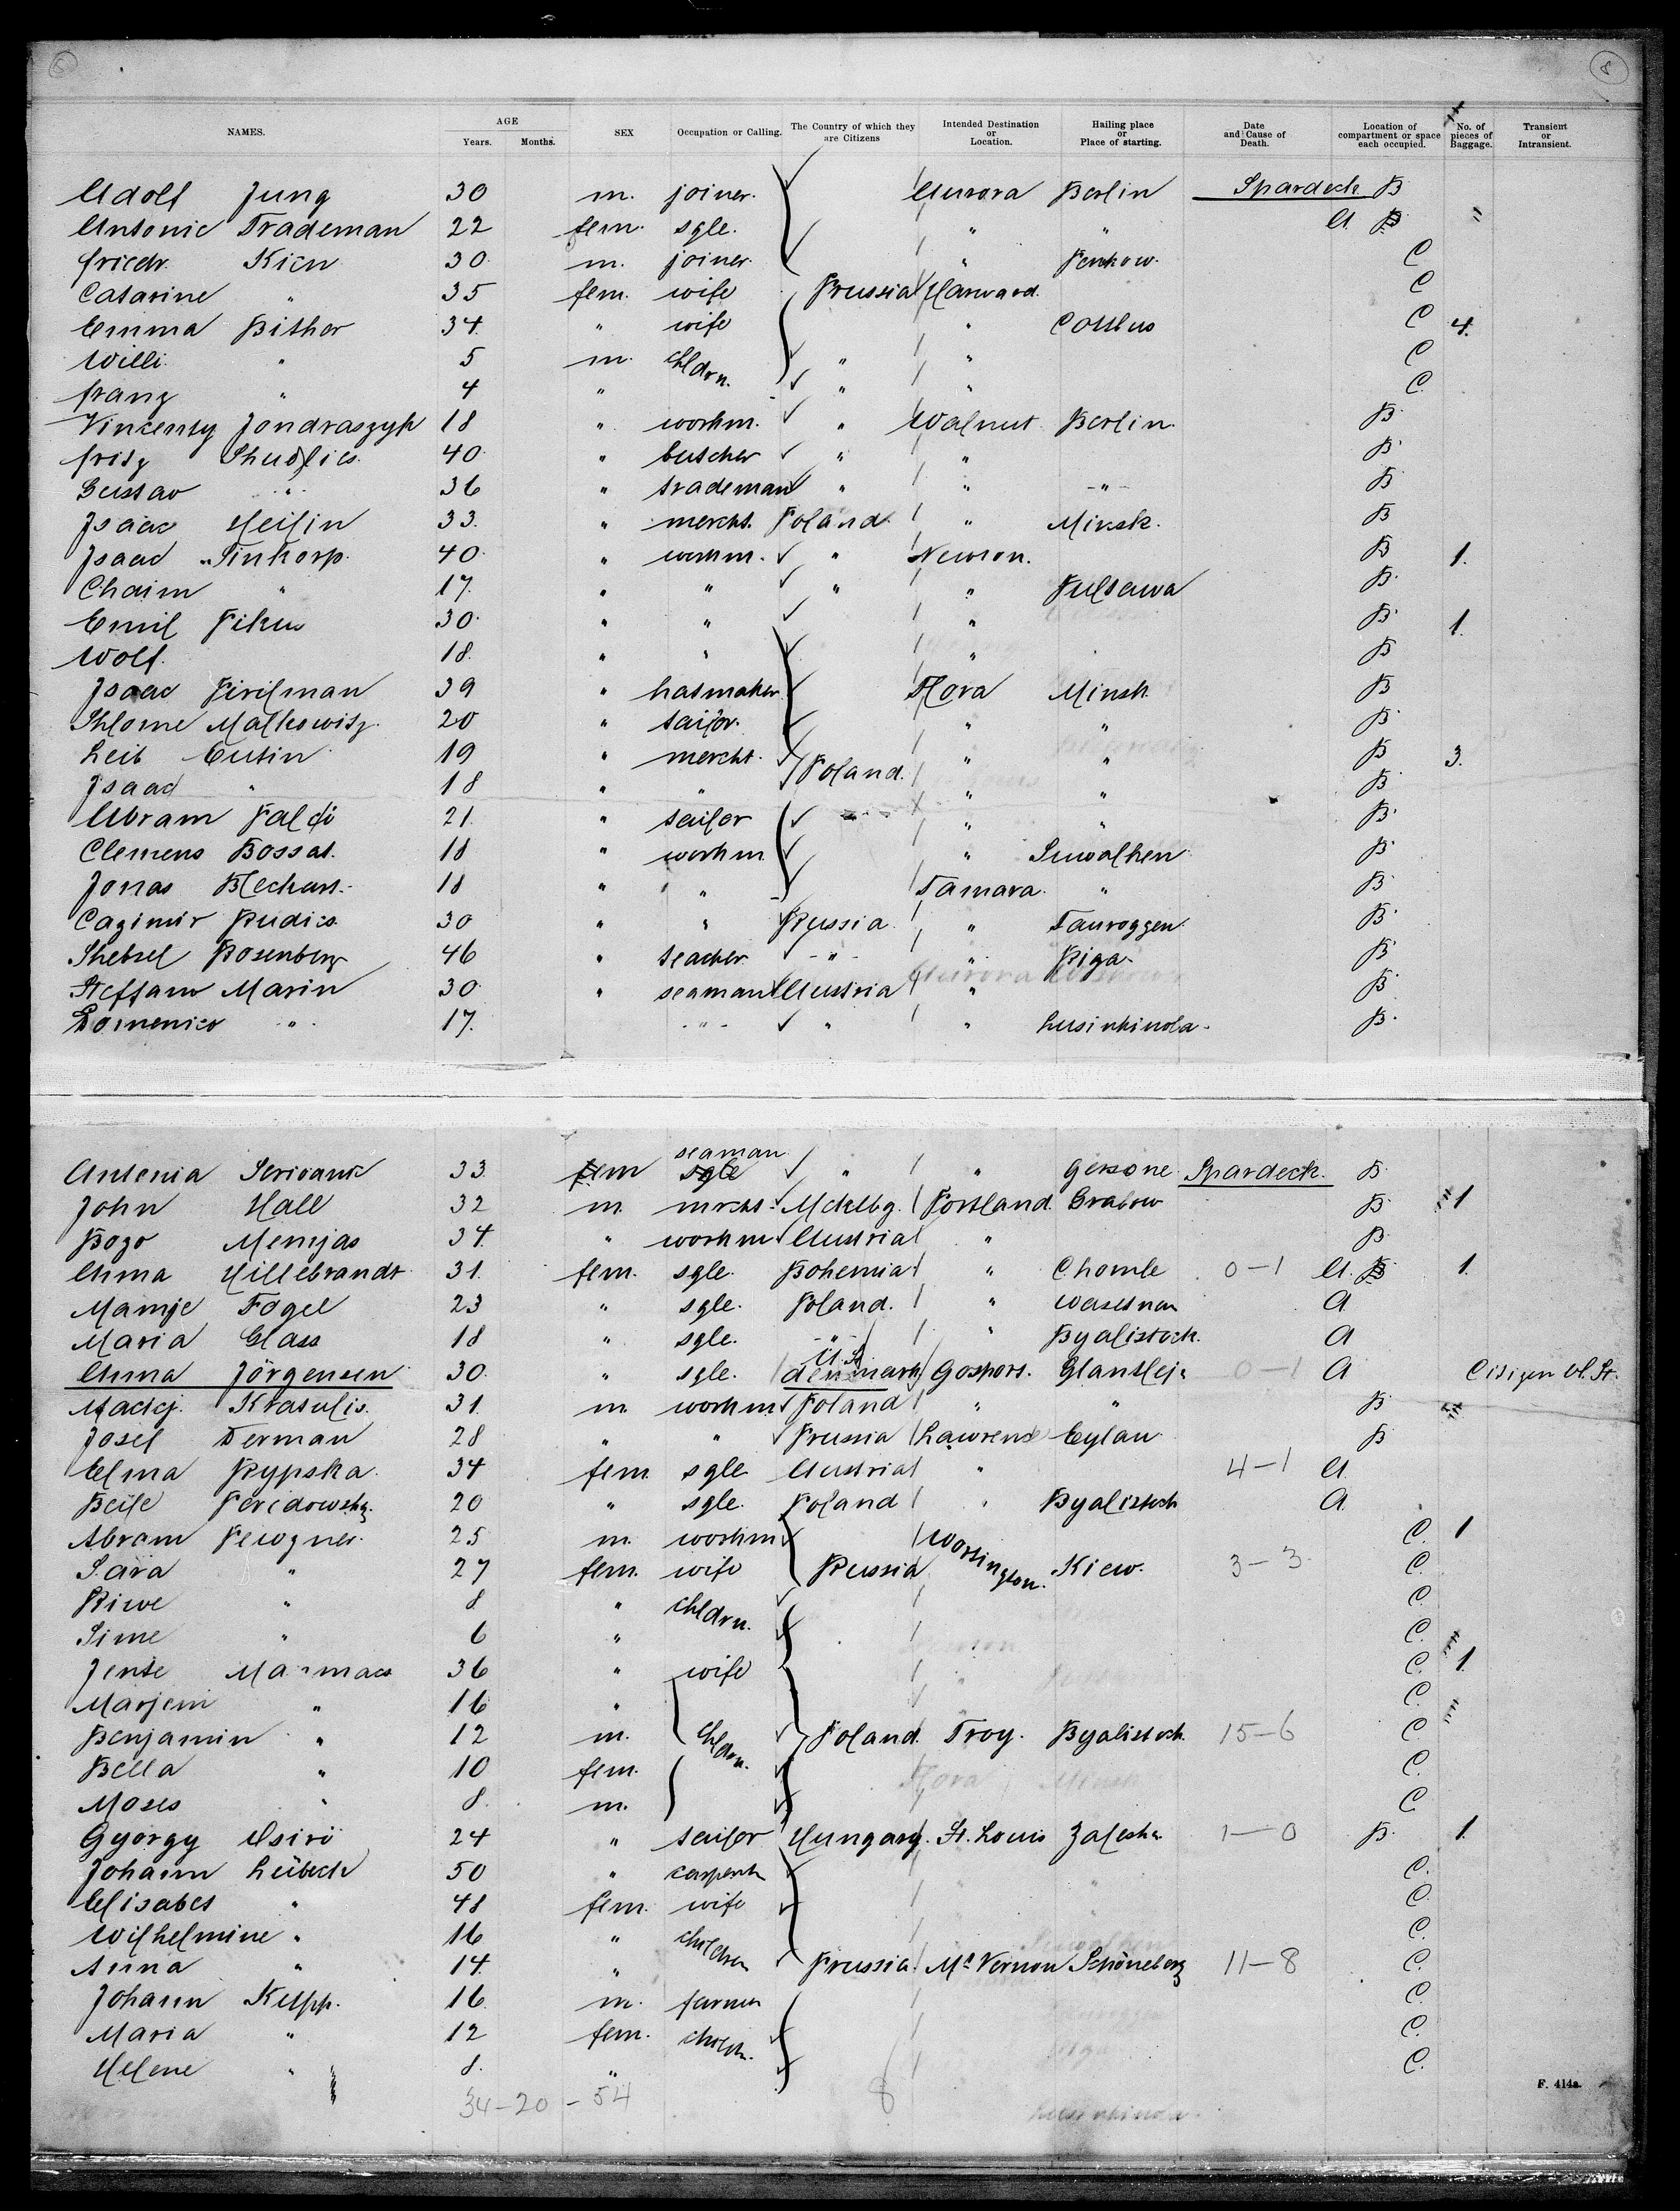 5
8
NAMES. AGE Years. Months. SEX Occupation or Calling. The Country of which they are Citizens Intended Destination or Location. Hailing place or Place of starting. Date and Cause of Death. Location of compartment or space each occupied. No. of pieces of Baggage. Transient or Intransient.
Adolf Jung 30 m. joiner. Aurora Berlin Spardeck B
Antonie Trademan 22 fem. sgle. " " A B "
Friedr. Kien 30 m. joiner. " C
Catarine " 35 fem. wife Prussia Harward. C
Emma Bither 34. " wife " Cottbus C 4.
Willi " 5 m. chldrn. " " C
Franz " 4 " " " C.
Vinzenty Jondraszyk 18 " workm. " Walnut Berlin B
Fritz 40 " butcher " " B
Gustav " 36 " trademan " " " B
Isaac Heilin 33. " mercht. Poland. " Minsk. B
Isaac Tinkorp. 40 " workm. " Newton. B 1.
Chaim " 17. " " " " Pultawa B
Emil Pikus 30. " " " B 1.
Wolf. 18. " " " B
Isaac Pirilman 39 " hatmaker Flora Minsk B
Shlome Malkowitz. 20 " tailor. " " B
Leib Eutin 19 " mercht. Poland. " " B 3.
Isaac " 18 " " " " B
Abram 21. " tailor " " B
Clemens Bossat. 18 " workm " Suwalken B
Jonas 18 " " Tamara. " B
Cazimir Rudies 30 " " Russia " Tauroggen B
Shebsel Rosenberg 46 " teacher " " Riga B
Steffano Marin 30. " seaman Austria " B
Domenico " 17. " " " Lusinkinola. B
Antonia Serivank 33. fem seaman sgle " " Gersone Spardeck. B
John Hall 32 m. mrcht. Mcklbg. Portland. Grabow B 1
Bozo Memjas 34. " workm Austria " B
Anna Hillebrandt 31. fem. sgle. Bohemia " Chomle 0-1 A. B 1.
Mamje Fogel 23 " sgle. Poland. " A
Maria Glass 18 " sgle. " " Byalistock. A
Anna Jörgensen 30. " sgle. U.St. denmark Gosport. 0-1 A Citizen U. St.
Maddcj. Krasulis. 31. m. workm Poland " " B
Josel Derman 28 " " Prussia Lawrence Eylau B
Elma Rypska 34 fem sgle Austria " 4-1 A.
Beile 20 " sgle. Poland " Byalistock A.
Abram Pewzner. 25 m. workm Wortington. C. 1
Sara " 27 fem. wife Russia Kiew. 3-3. C.
Riwe " 8 " chldrn. C.
Sime " 6 " C.
Jente Marmacs 36 " wife C. 1.
Marjem " 16 " C.
Benjamin " 12 m. chldrn. Poland. Troy. Byalistock. 15-6 C.
Bella " 10 fem. C.
Moses " 8. m. C
Gyorgy Usirö 24 " tailor Hungary. St. Louis 1-0 B. 1.
Johann Lübeck 50 " carpentr C.
Elisabet " 48 fem. wife C.
Wilhelmine " 16 " children C.
Anna " 14. " Prussia. Mt Vernon Schöneberg 11-8 C.
Johann Kupp. 16 m. farmer C.
Maria " 12 fem. childr. C.
Helene " 8. " C.
34-20-54 8
F. 414a.